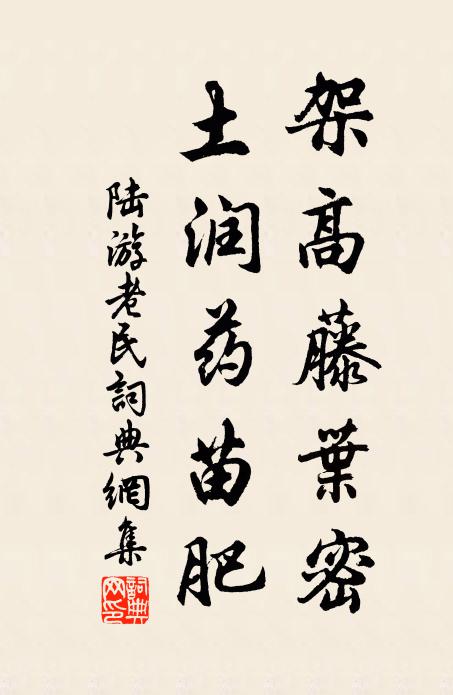 架高藤葉密
土润药苗肥
陆游老民詞典網集
詞典网印